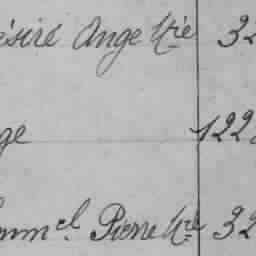 ésiré Ange Xrie 32
ge 122
mmel Pierre 32